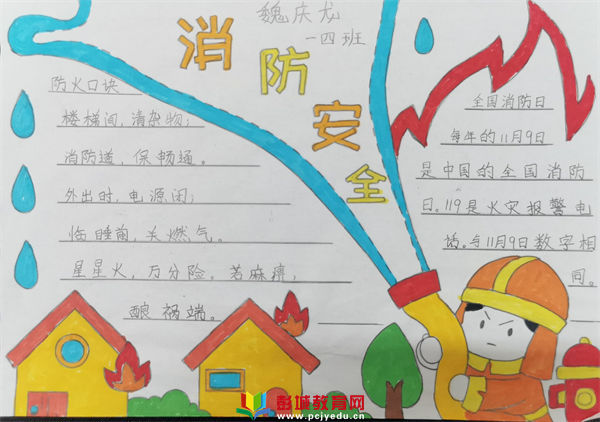 魏庆龙
一四班
消防安全
防火口诀
楼梯间，清杂物；
消防道，保畅通。
外出时，电源闭；
临睡前，关燃气。
星星火，万分险。若麻痹，
酿祸端。
全国消防日
每年的11月9日
是中国的全国消防
日。119是火灾报警电
话。与11月9日数字相
同。
彭城教育网
www.pcjyedu.cn